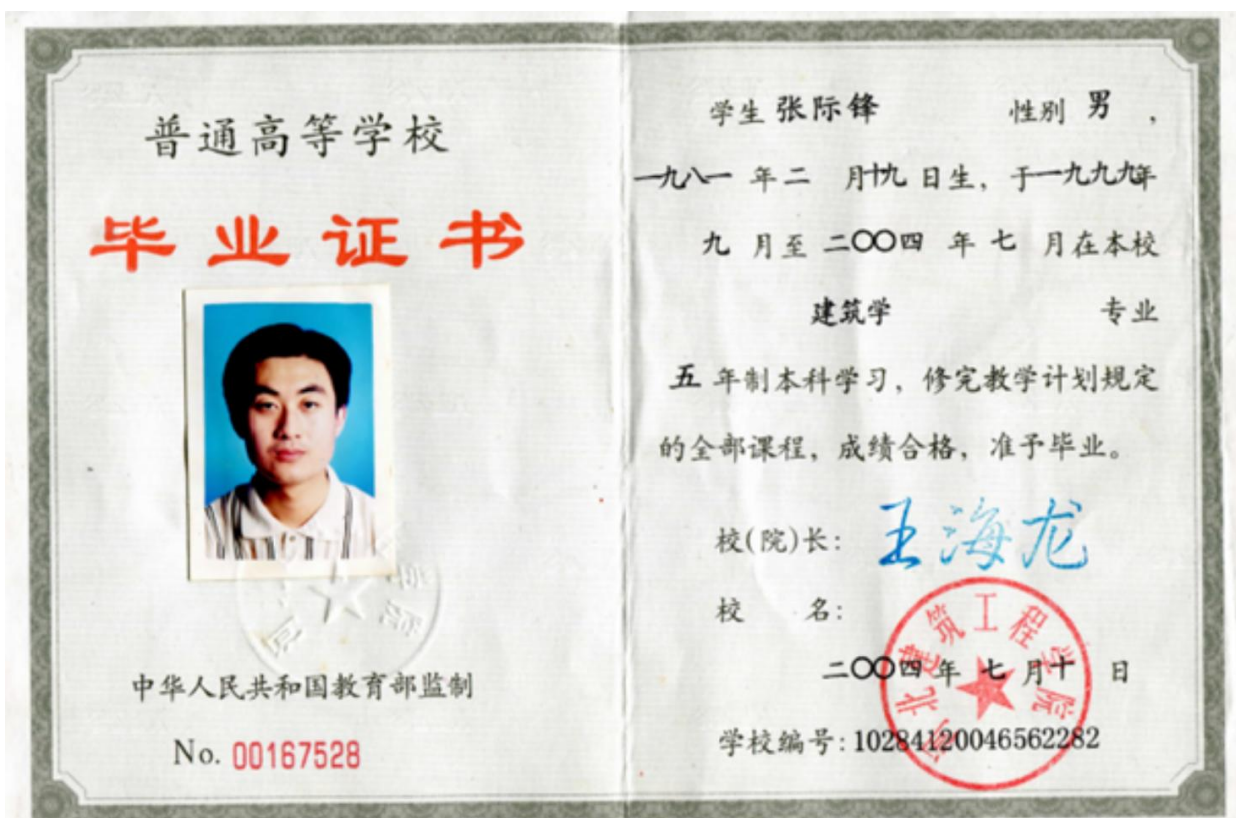 普通高等学校
毕业证书
中华人民共和国教育部监制
No. 00167528
学生 张际锋 性别 男 ,
一九八一 年二 月十九 日生, 于一九九九年
九 月至 二〇〇四 年 七 月在本校
建筑学 专业
五 年制本科学习, 修完教学计划规定
的全部课程, 成绩合格, 准予毕业。
校(院)长: 王海龙
校 名:
河北建筑工程学院
二〇〇四 年 七 月十 日
学校编号: 10284120046562282